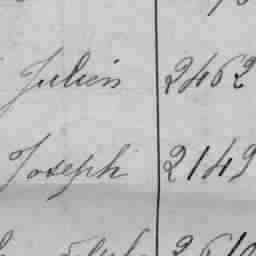 Julien 2462
Joseph 2149